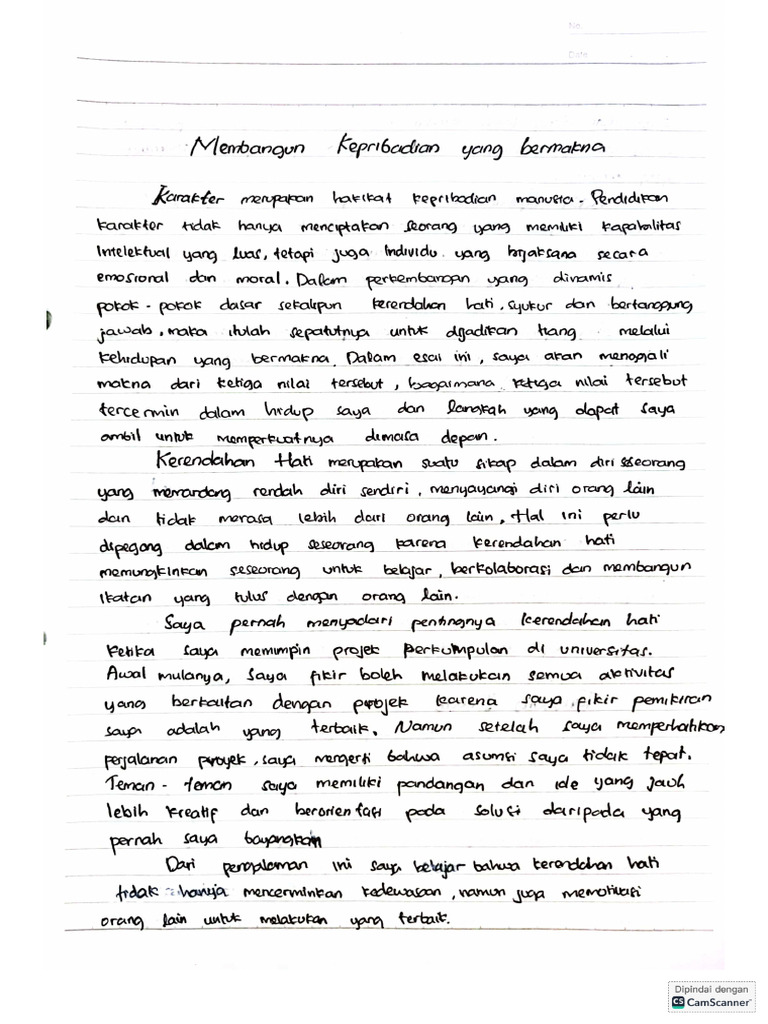 No.
Date
Membangun Kepribadian yang bermakna
Karakter merupakan hakikat kepribadian manusia. Pendidikan
karakter tidak hanya menciptakan seorang yang memiliki kapabilitas
Intelektual yang luas, tetapi juga individu yang bijaksana secara
emosional dan moral. Dalam perkembangan yang dinamis
pokok - pokok dasar sekalipun kerendahan hati, syukur dan bertanggung
jawab, maka itulah sepatutnya untuk dijadikan tiang melalui
kehidupan yang bermakna. Dalam esai ini, saya akan menggali
makna dari ketiga nilai tersebut, bagaimana ketiga nilai tersebut
tercermin dalam hidup saya dan langkah yang dapat saya
ambil untuk memperkuatnya dimasa depan.
Kerendahan Hati merupakan suatu sikap dalam diri seseorang
yang memandang rendah diri sendiri, menyayangi diri orang lain
dan tidak merasa lebih dari orang lain, Hal ini perlu
dipegang dalam hidup seseorang karena kerendahan hati
memungkinkan seseorang untuk belajar, berkolaborasi dan membangun
ikatan yang tulus dengan orang lain.
Saya pernah menyadari pentingnya kerendahan hati
ketika saya memimpin projek perkumpulan di universitas.
Awal mulanya, saya fikir boleh melakukan semua aktivitas
yang berkaitan dengan projek karena saya fikir pemikiran
saya adalah yang terbaik. Namun setelah saya memperhatikan
perjalanan proyek, saya mengerti bahwa asumsi saya tidak tepat.
Teman - teman saya memiliki pandangan dan ide yang jauh
lebih kreatif dan berorientasi pada solusi daripada yang
pernah saya bayangkan
Dari pengalaman ini saya belajar bahwa kerendahan hati
tidak hanya mencerminkan kedewasaan, namun juga memotivasi
orang lain untuk melakukan yang terbaik.
Dipindai dengan
CS CamScanner